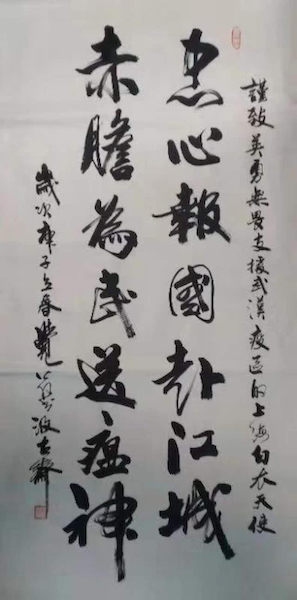 謹致英勇無畏支援武漢疫區的上海白衣天使
忠心報國赴江城
赤膽為民送瘟神
歲次庚子立春